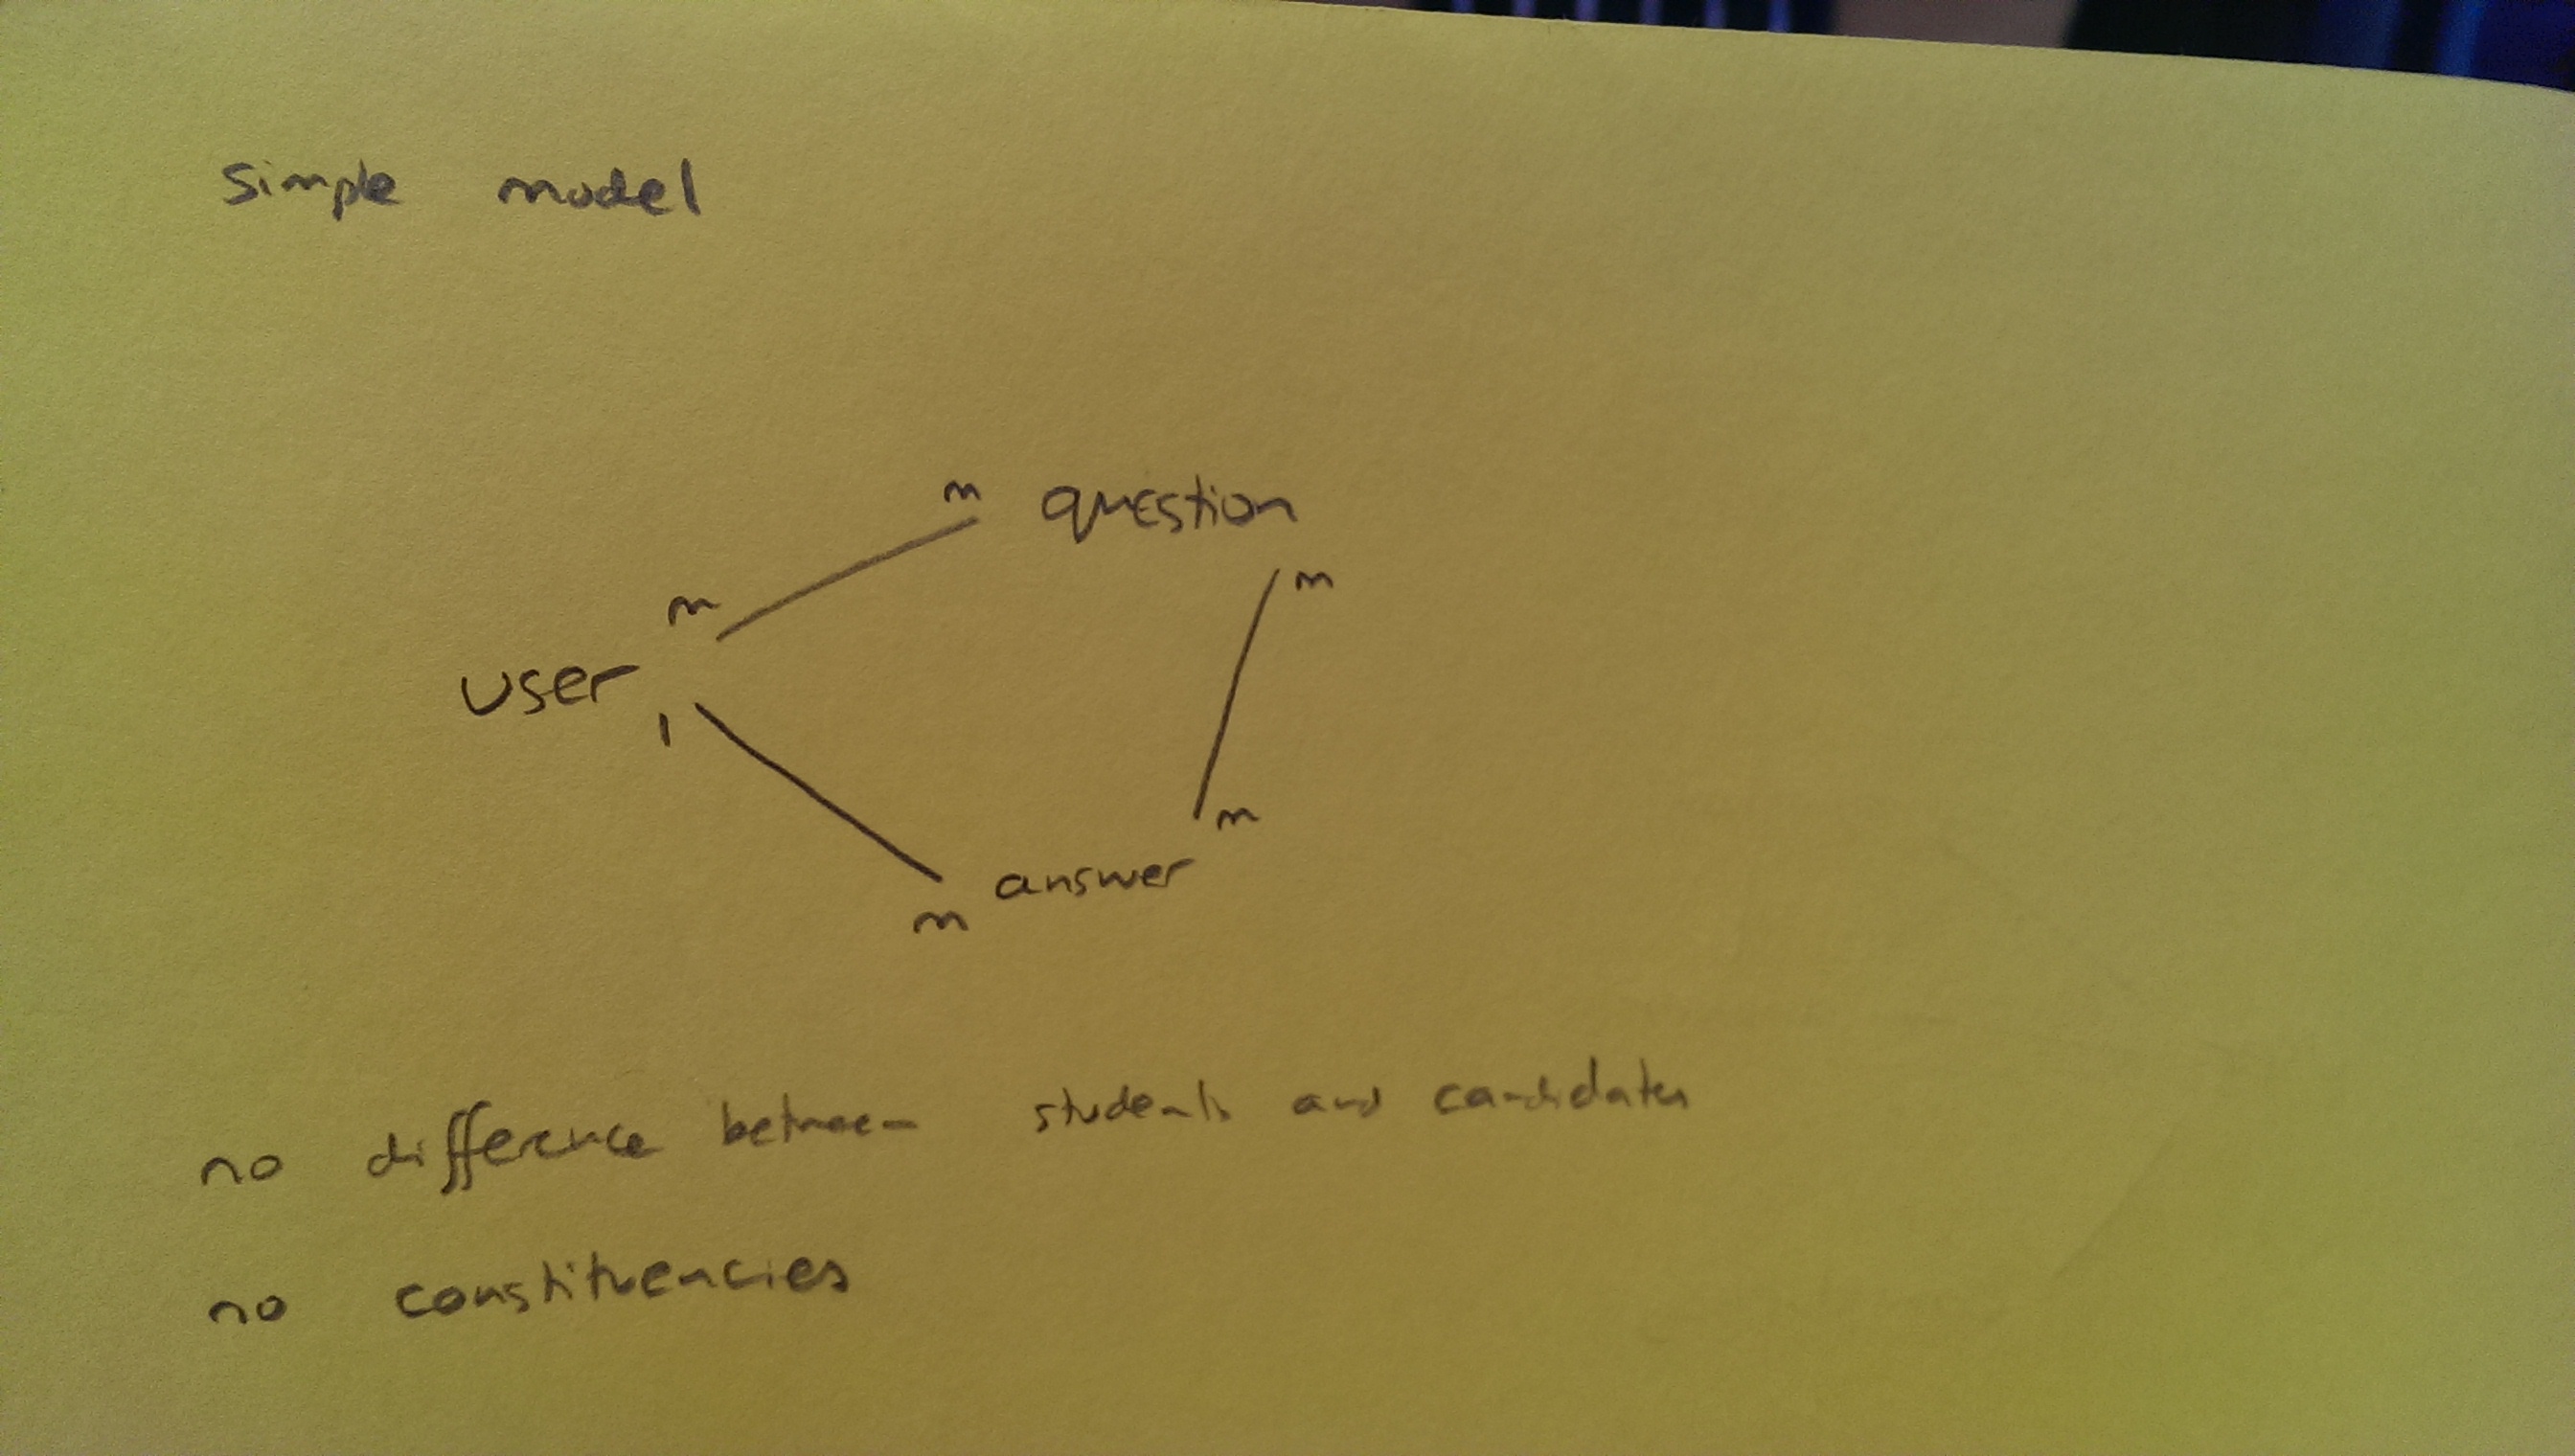 simple model
m question
m
m
user
1
m
answer
m
no difference between students and candidates
no constituencies